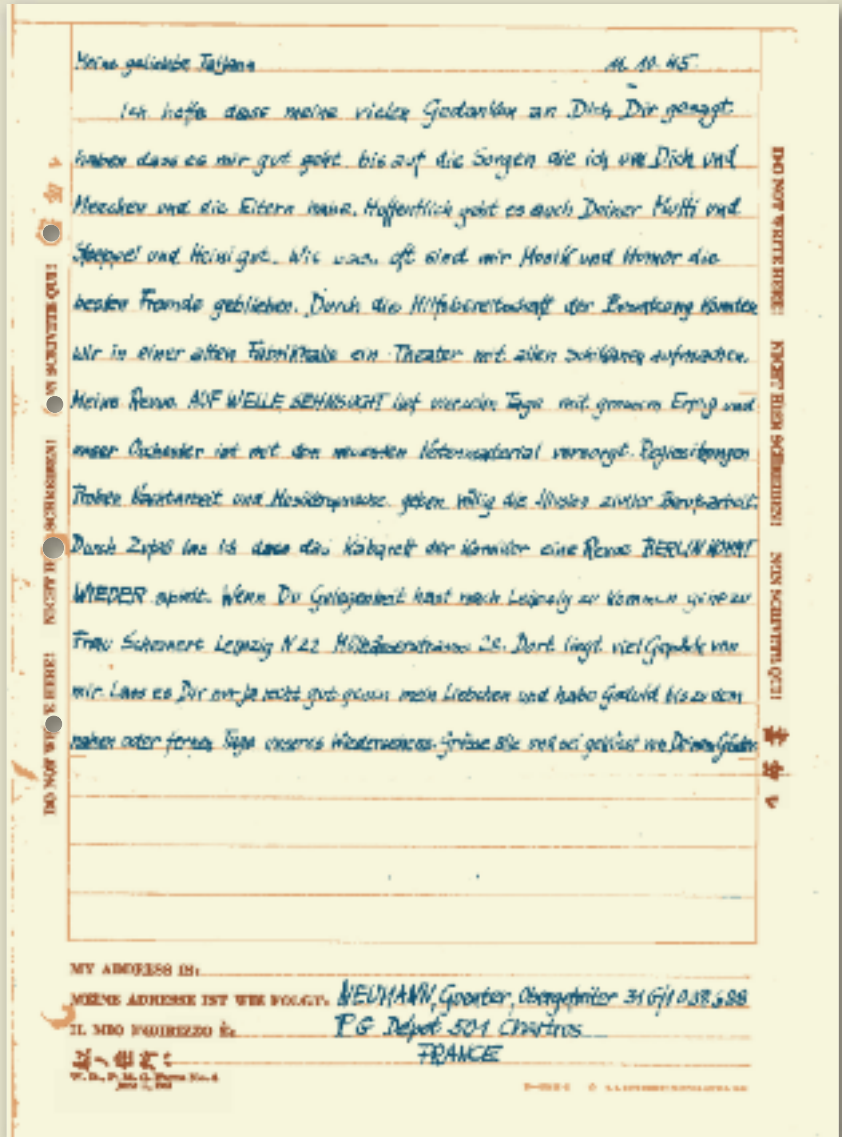 Meine geliebte Tatjana 11. 10. 45.
Ich hoffe dass meine vielen Gedanken an Dich Dir gesagt
haben dass es mir gut geht bis auf die Sorgen die ich um Dich und
und die Eltern habe. Hoffentlich geht es auch Deiner Mutti und
und Heini gut. Wie oft sind mir Musik und Humor die
besten Freunde geblieben. Durch die Hilfsbereitschaft der konnten
wir in einer alten Fabrikhalle ein Theater mit allen Schikanen aufmachen.
Meine Revue AUF WELLE SEHNSUCHT lief Tage mit grossem Erfolg und
unser Orchester ist mit dem neuesten Notenmaterial versorgt. Regiesitzungen
Proben Nachtarbeit und geben völlig die Illusion ziviler Berufsarbeit.
Durch las ich dass das Kabarett der Komiker eine Revue BERLIN KOMMT
WIEDER spielt. Wenn Du Gelegenheit hast nach Leipzig zu kommen zu
Frau Leipzig N 22 Dort liegt viel Gepäck von
mir. Lass es Dir nur ja recht gut gehen mein Liebchen und habe Geduld bis zu dem
nahen oder fernen Tage unseres Wiedersehens. Grüsse alle und sei geküsst von Deinem
DO NOT WRITE HERE!
NICHT HIER SCHREIBEN!
NON SCRIVETE QUI!
MY ADDRESS IS:
MEINE ADRESSE IST WIE FOLGT: NEUMANN, Guenter, Obergefreiter 31G/1 038688
IL MIO INDIRIZZO È: P G Dépot 501 Chartres
FRANCE
W. D., P. M. G. Form No. 4